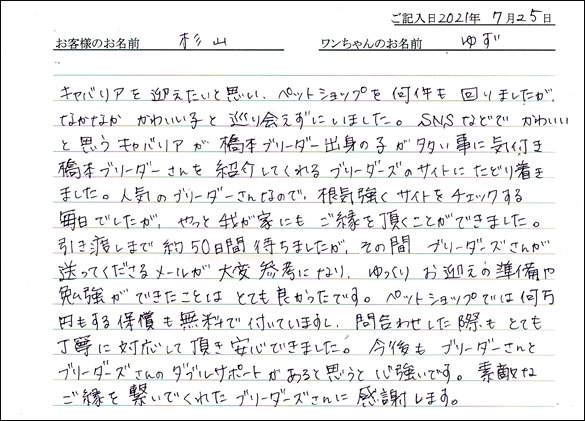 ご記入日2021年 7月25日
お客様のお名前 杉山 ワンちゃんのお名前 ゆず
キャバリアを迎えたいと思い、ペットショップを何件も回りましたが、
なかなか かわいい子と巡り会えずにいました。SNSなどで かわいい
と思うキャバリアが橋本ブリーダー出身の子が多い事に気付き
橋本ブリーダーさんを紹介してくれるブリーダーズのサイトにたどり着き
ました。人気のブリーダーさんなので、根気強くサイトをチェックする
毎日でしたが、やっと我が家にもご縁を頂くことができました。
引き渡しまで約50日間待ちましたが、その間 ブリーダーズさんが
送ってくださるメールが大変参考になり、ゆっくりお迎えの準備や
勉強ができたことはとても良かったです。ペットショップでは何万
円もする保償も無料で付いていますし、問合わせした際もとても
丁寧に対応して頂き安心できました。今後もブリーダーさんと
ブリーダーズさんのダブルサポートがあると思うと心強いです。素敵な
ご縁を繋いでくれたブリーダーズさんに感謝します。